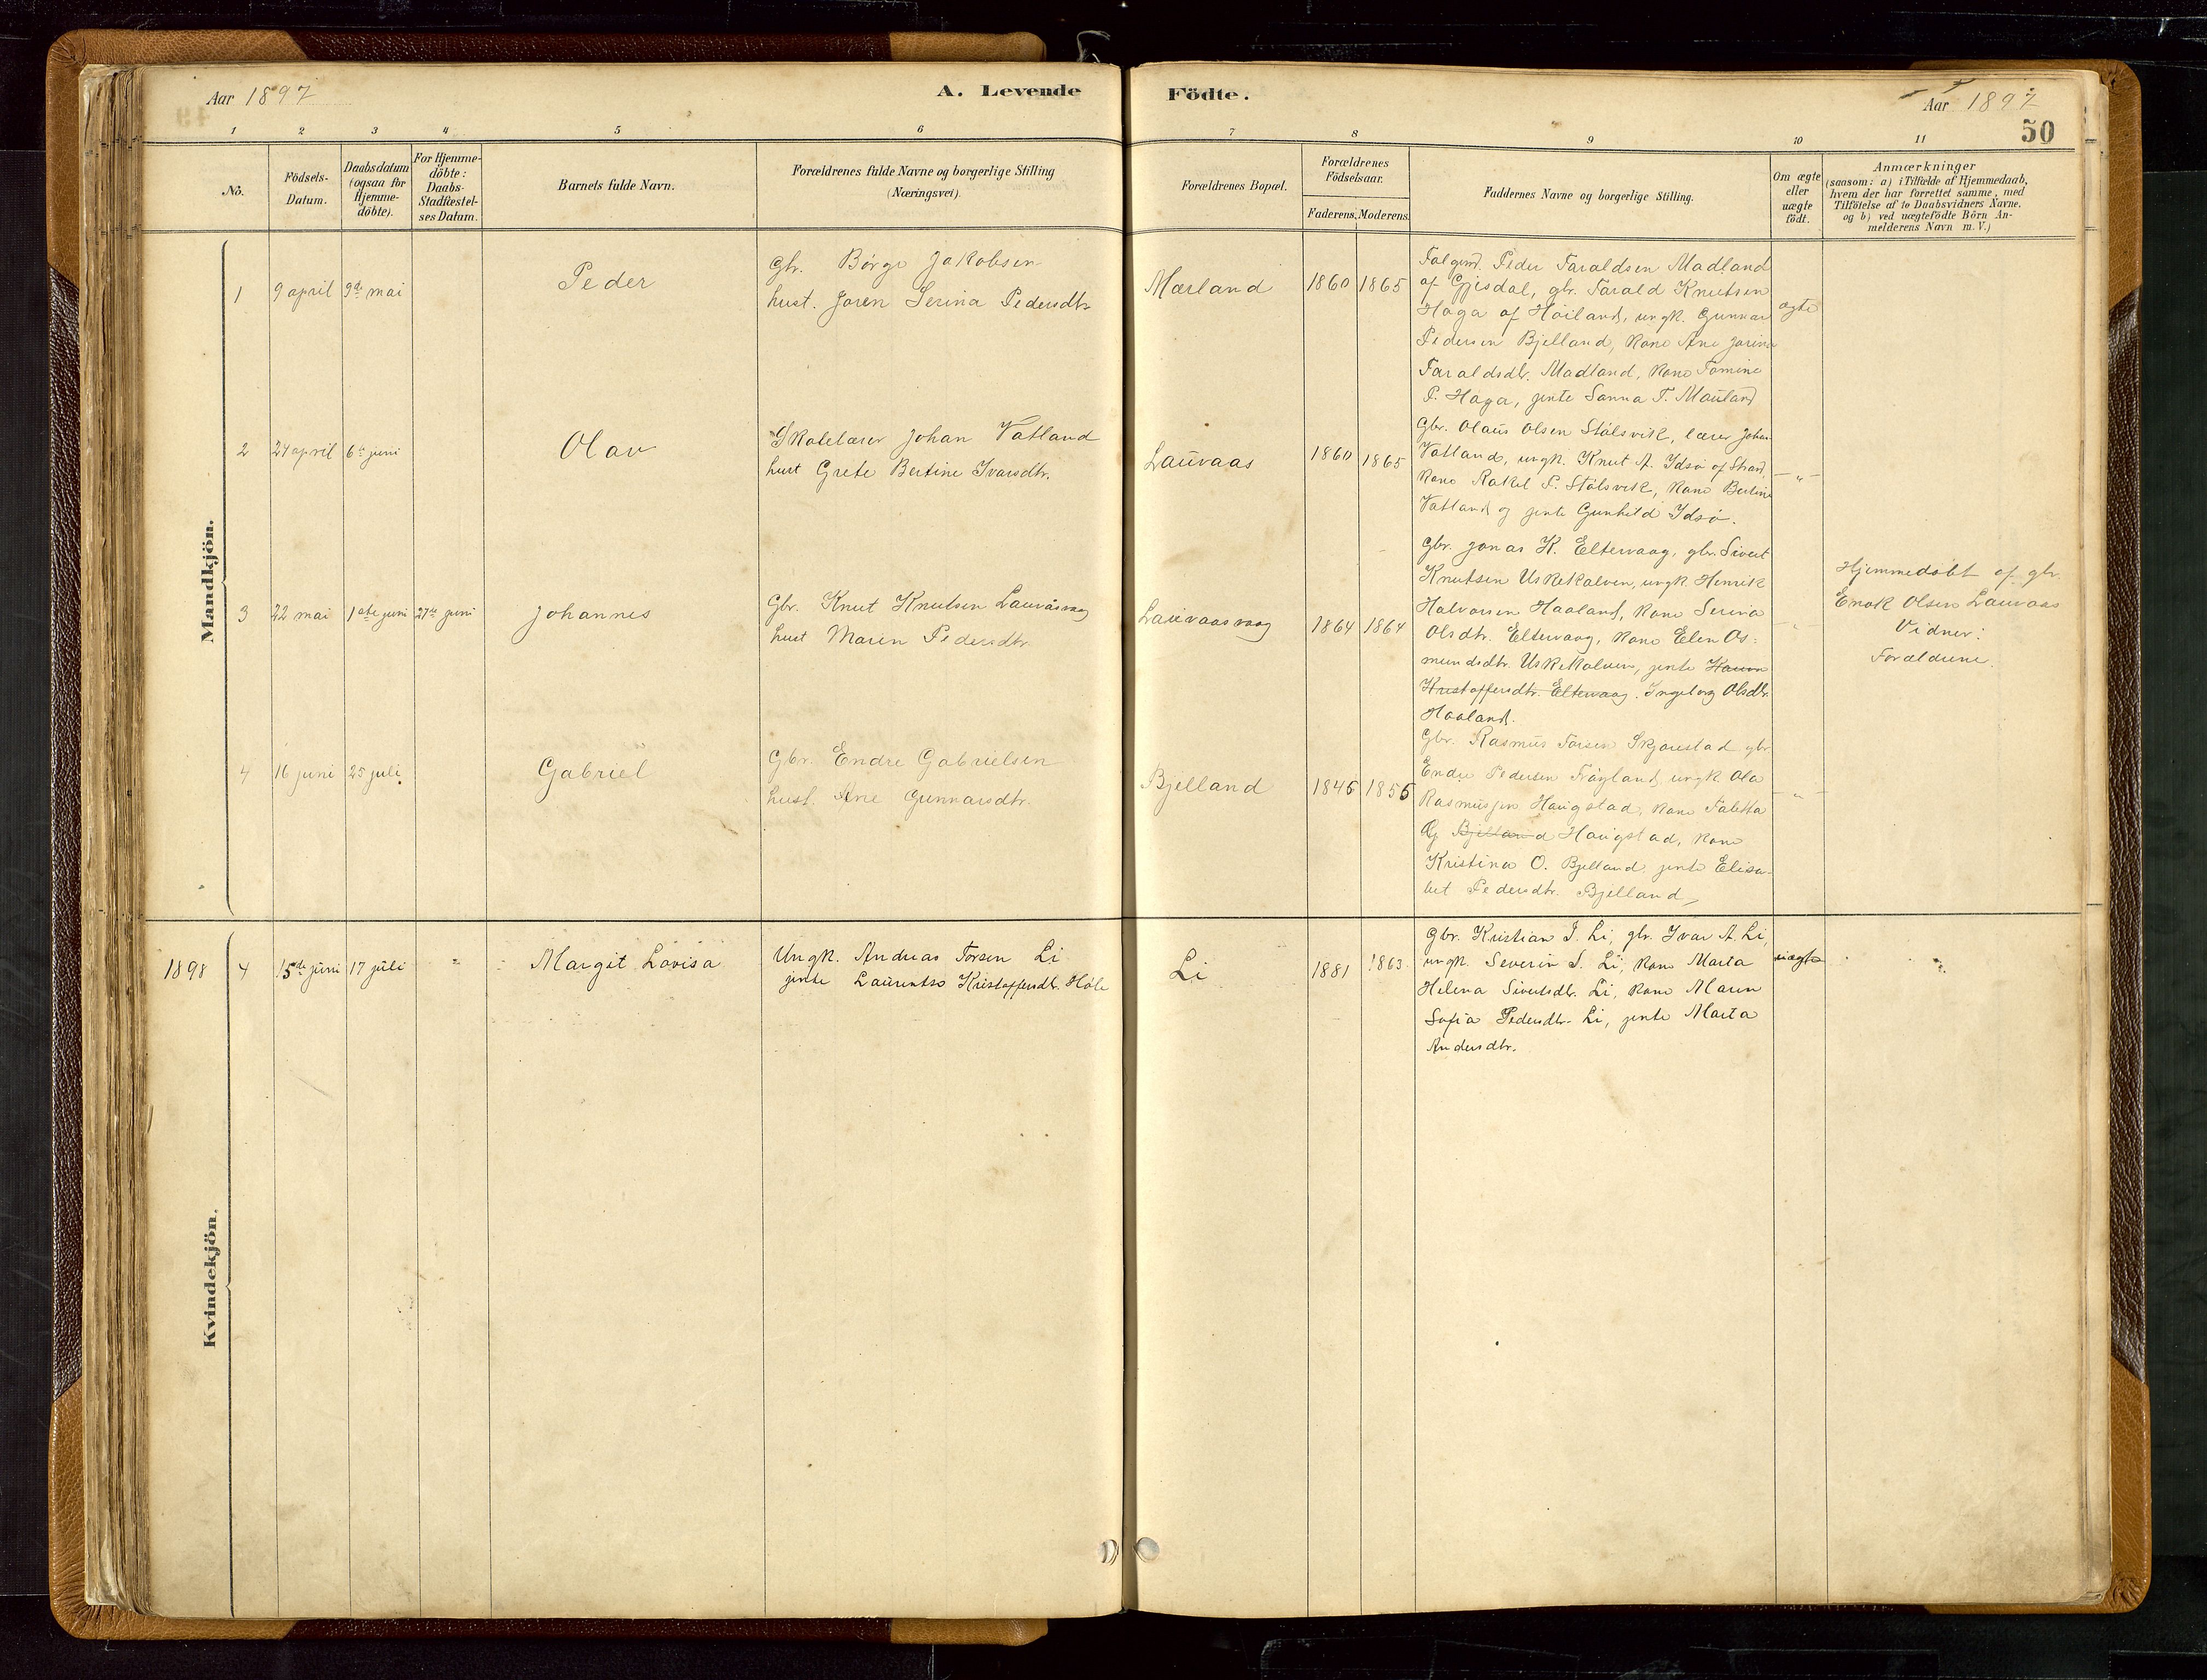 Aar 1897
A. Levende Födte.
Aar 1897
50
1 2 3 4 5 6 7 8 9 10 11
No.
Födsels-Datum.
Daabsdatum (ogsaa for Hjemme-döbte).
For Hjemme-döbte: Daabs-Stadfæstel-ses Datum.
Barnets fulde Navn.
Forældrenes fulde Navne og borgerlige Stilling (Næringsvei).
Forældrenes Bopæl.
Forældrenes Födselsaar.
Faderens. Moderens.
Faddernes Navne og borgerlige Stilling.
Om ægte eller uægte födt.
Anmærkninger
(saasom: a) i Tilfælde af Hjemmedaab,
hvem der har forrettet samme, med
Tilföielse af to Daabsvidners Navne,
og b) ved uægtefödte Börn An-
melderens Navn m. V.)
Mandkjön.
1 9 april 9de mai Peder
Gbr. Börge Jakobsen
hust. Joren Serina Pedersdtr.
Mærland 1860 1865
Peder Taraldsen Madland
af Gjesdal, gbr. Tarald Knutsen
Haga af Höiland, ungk. Gunnar
Pedersen Bjelland, kone Ane Jorina
Taraldsdtr. Madland, kone Tomine
P. Haga, jente Sanna T. Mauland
ægte
2 24 april 6te juni Olav
Skolelærer Johan Vatland
hust Grete Bertine Ivarsdtr.
Lauvaas 1860 1865
Gbr. Olaus Olsen Stålsvik, lærer Johan
Vatland, ungk. Knut A. Idsö af Strand,
kone Rakel S. Stålsvik, kone Bertine
Vatland og jente Gunhild Idsö.
"
3 22 mai 1ste juni 27de juni Johannes
Gbr. Knut Knutsen Lauvåsvag
hust Maren Pedersdtr.
Lauvaasvaag 1864 1864
Gbr. Jonas K. Eltervaag, gbr. Sivert
Knutsen Uskekalven, ungk. Henrik
Halvorsen Haaland, kone Serina
Olsdtr. Eltervaag, kone Elen Os-
mundsdtr. Uskekalven, jente
Kristoffersdtr. Eltervaag. Ingeborg Olsdtr.
Haaland.
"
Hjemmedöbt af gbr.
Enok Olsen Lauvaas
Vidner:
Forældrene.
4 16 juni 25 juli Gabriel
Gbr. Endre Gabrielsen
hust. Ane Gunnarsdtr.
Bjelland 1846 1856
Gbr. Rasmus Torsen Skjörestad gbr
Endre Pedersen Fröyland, ungk Ola
Rasmussen Haugstad, kone Taletta
G Bjelland Haugstad, kone
Kristina O. Bjelland, jente Elisa-
bet Pedersdtr. Bjelland,
"
Kvindekjön.
1898 4 15de juni 17 juli " Margit Lovisa
Ungk. Andreas Torsen Li
jente Laurentse Kristoffersdtr. Höle
Li 1881 1863
Gbr. Kristian I. Li, gbr. Ivar A. Li,
ungk. Severin S. Li, kone Marta
Helena Sivertsdtr. Li, kone Maren
Sofia Pedersdtr. Li, jente Marta
Andersdtr.
uægte